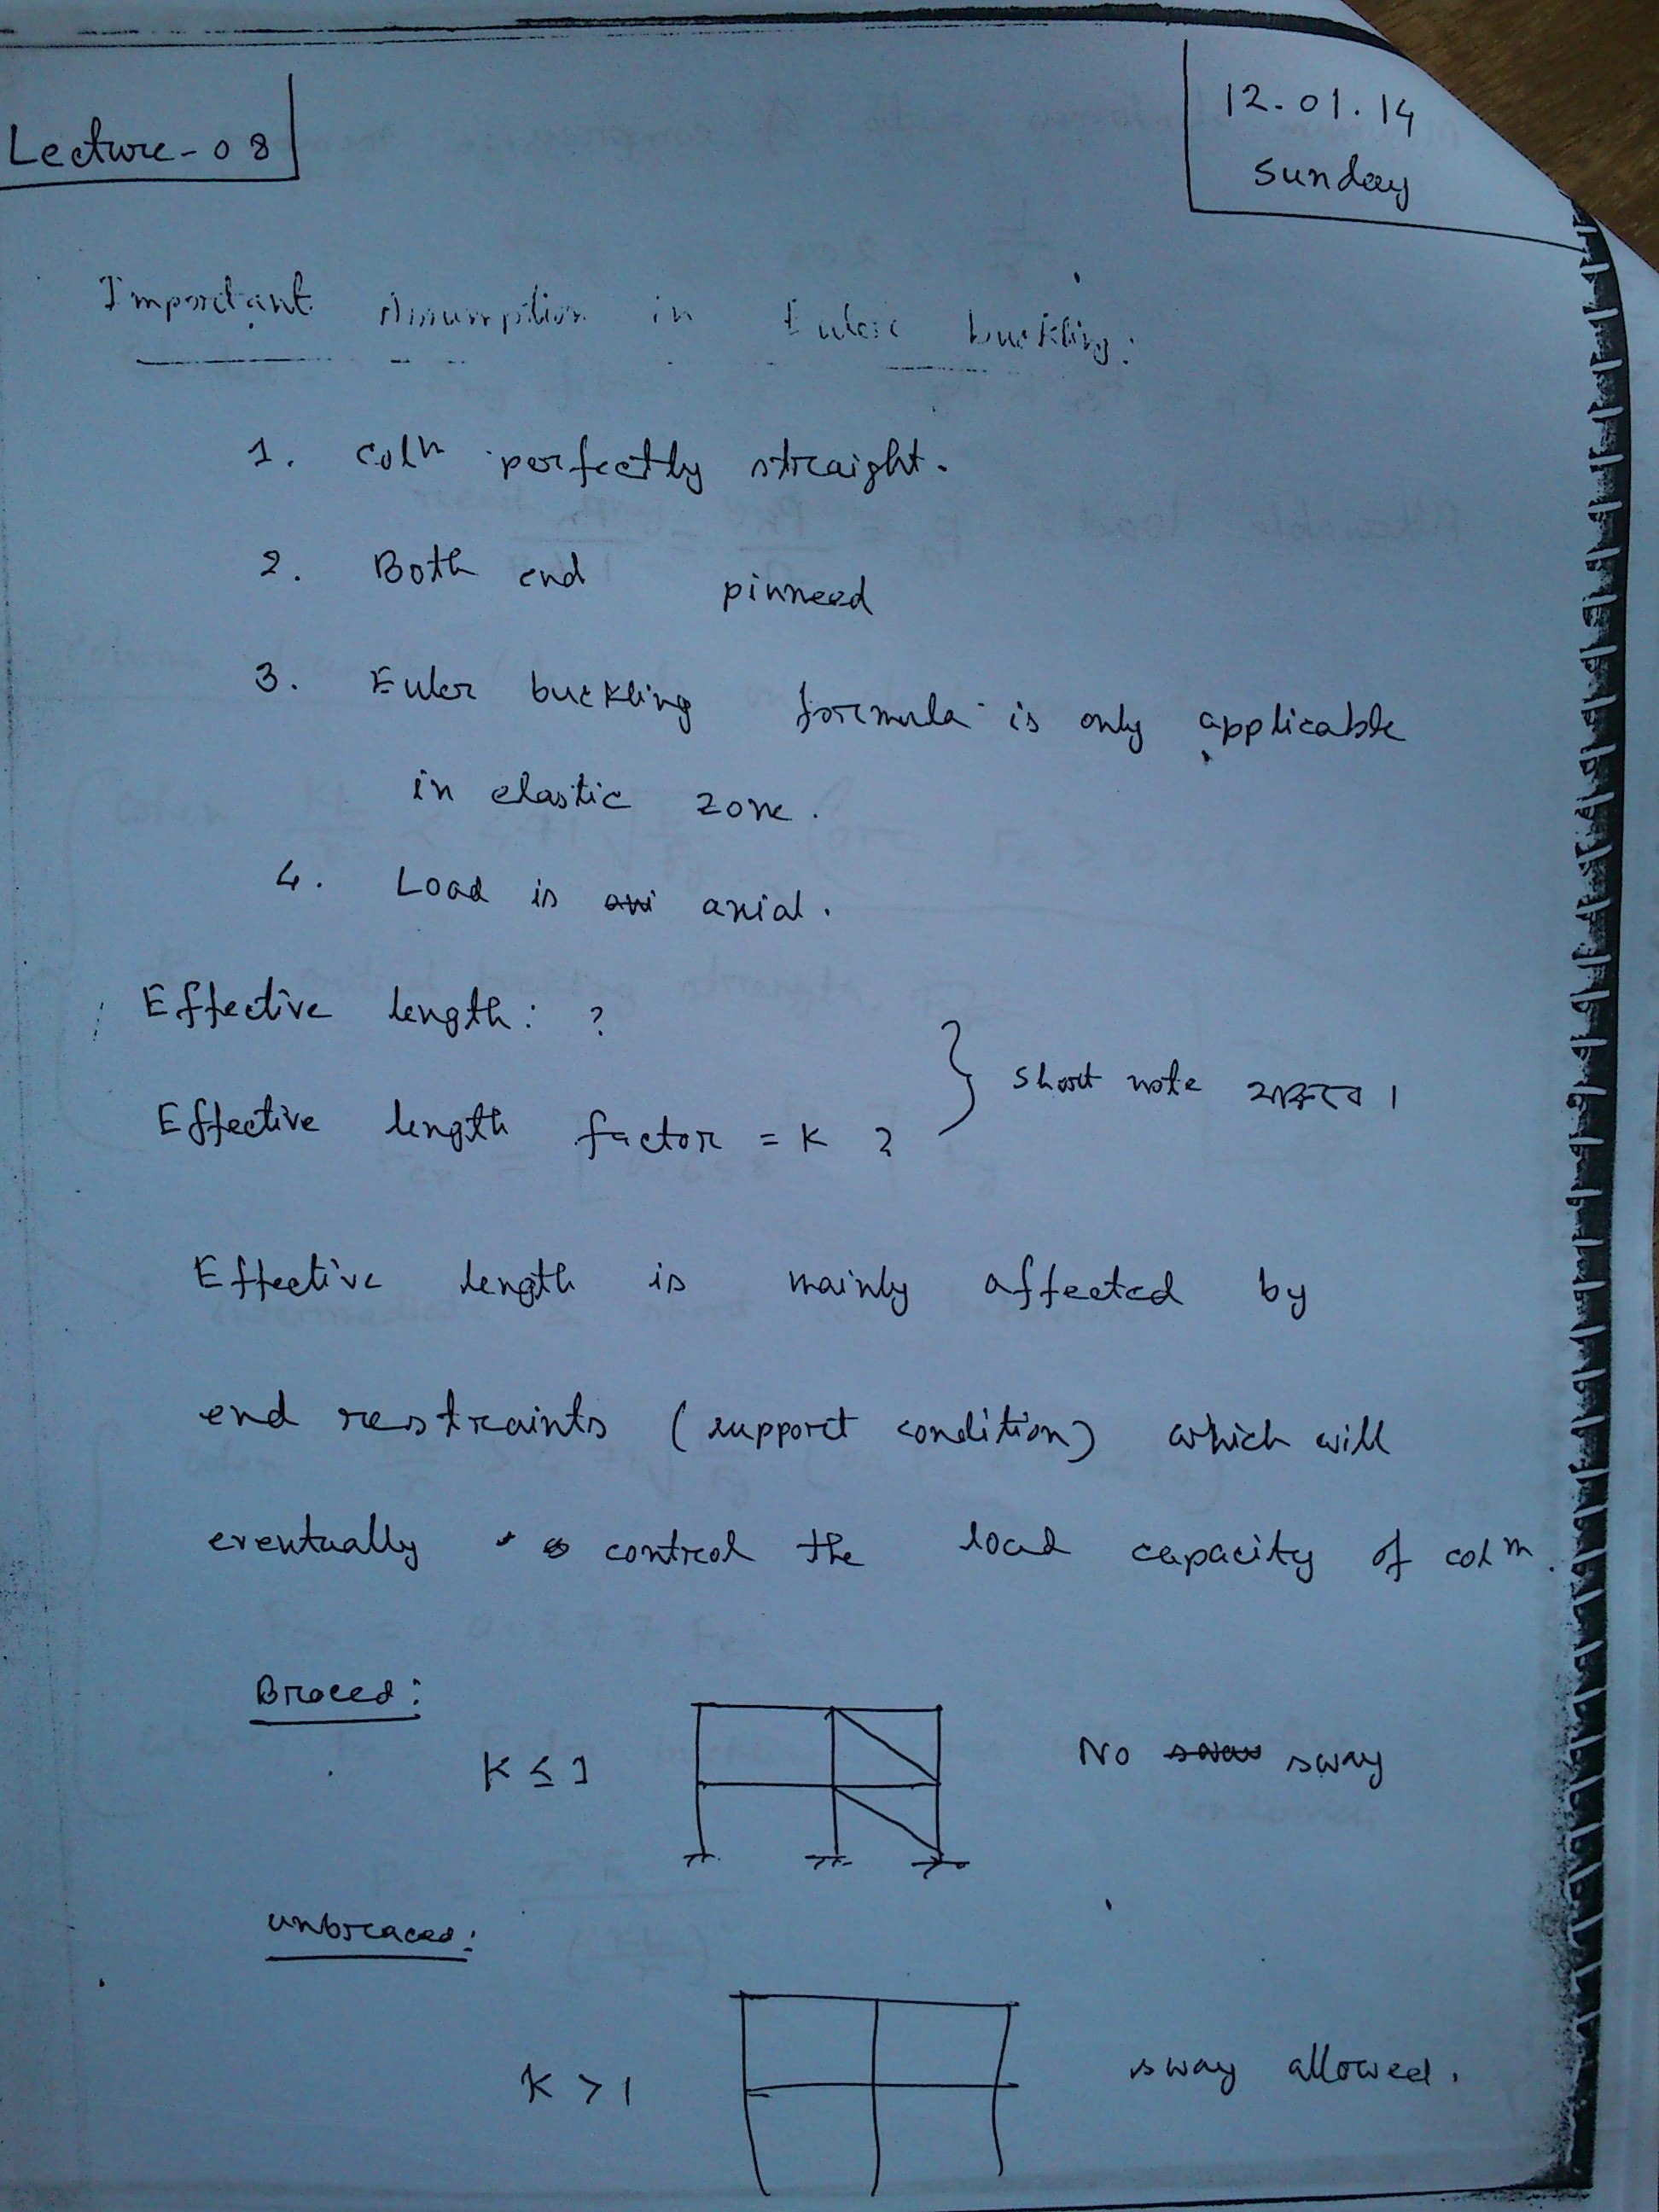 Lecture-08
12.01.14
Sunday
Important Assumption in Euler buckling:
1. Colⁿ perfectly straight.
2. Both end pinneed
3. Euler buckling formula is only applicable
in elastic zone.
4. Load is axi axial.
Effective length: ?
Effective length factor = K ?
} short note থাকবে।
Effective length is mainly affected by
end restraints (support condition) which will
eventually control the load capacity of colᵐ.
Braced:
K ≤ 1
No sway
unbraced:
K > 1
sway allowed.